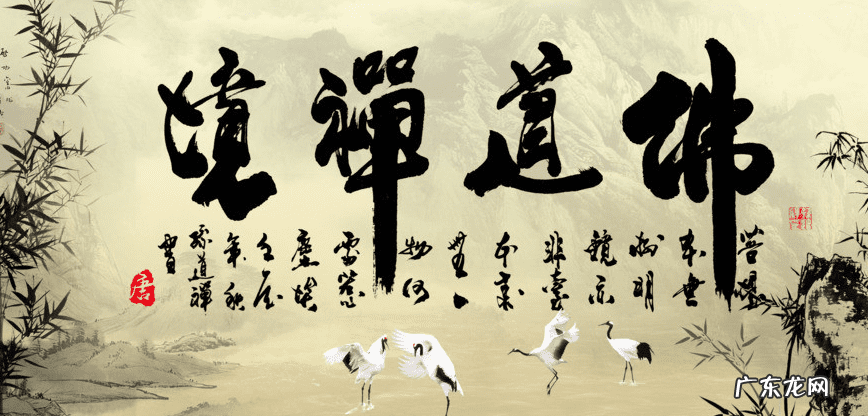 佛道禪境
菩提
本無
樹明
鏡亦
非臺
本來
無
物何
惹
塵埃
年秋
道禪
書
广东龙网